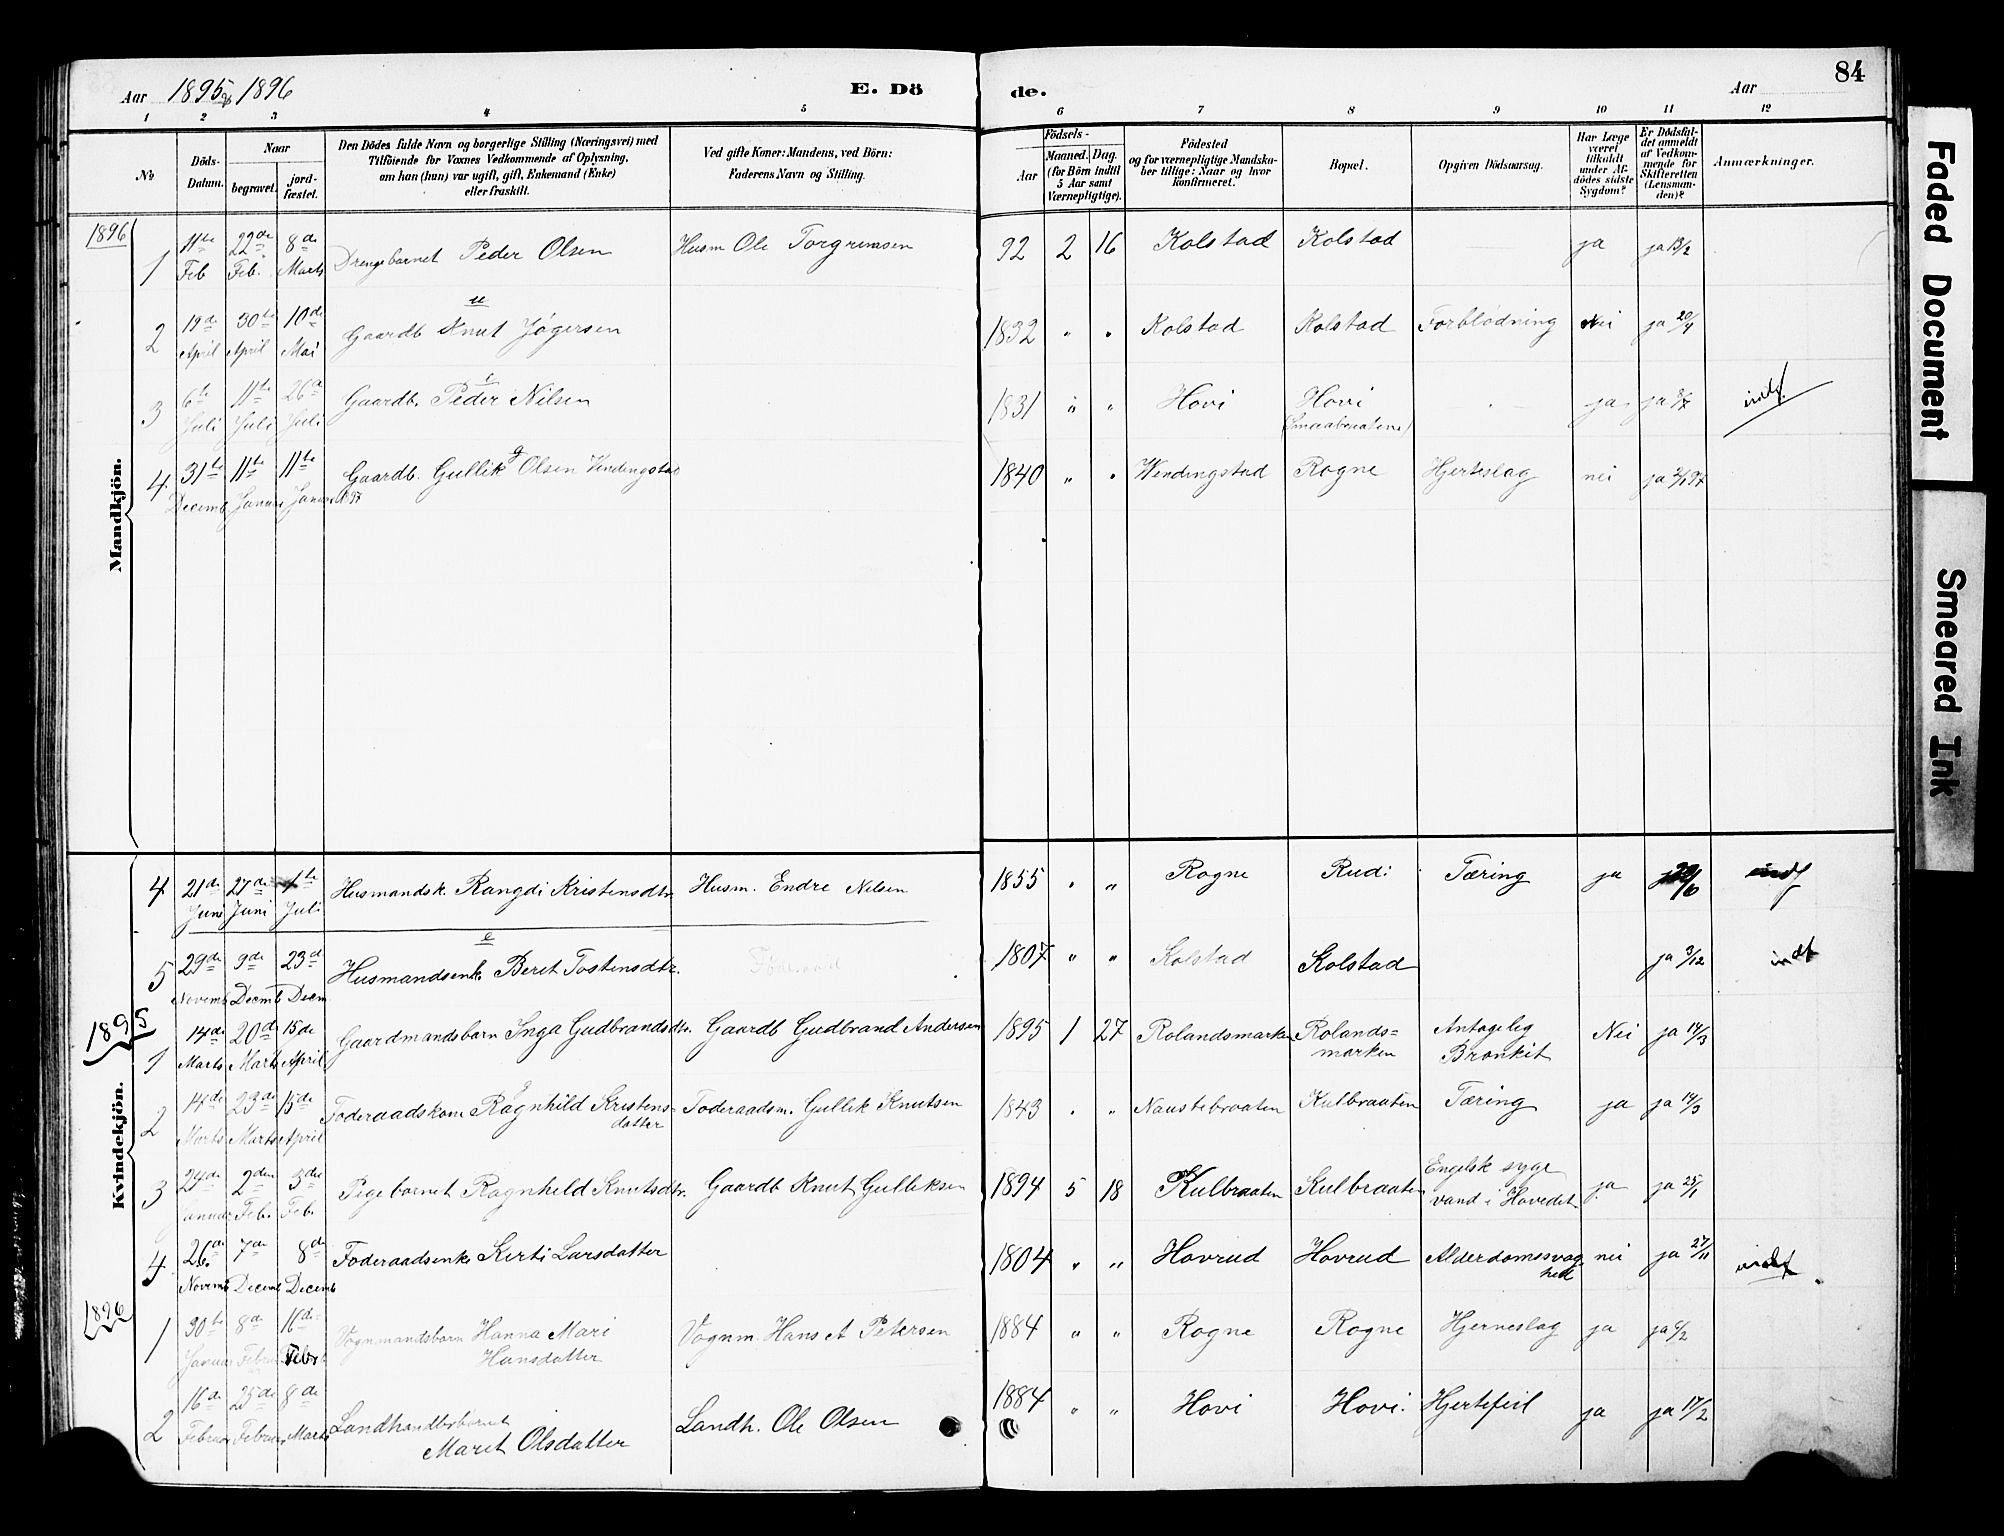 Aar 1895 og 1896
E. Dö
de.
Aar
84
1 2 3 4 5 6 7 8 9 10 11 12
No
Döds-Datum.
Naar
begravet.
jordfæstet.
Den Dödes fulde Navn og borgerlige Stilling (Næringsvei) med
Tilföiende for Voxnes Vedkommende af Oplysning,
om han (hun) var ugift, gift, Enkemand (Enke)
eller fraskilt.
Ved gifte Koner: Mandens, ved Börn:
Faderens Navn og Stilling.
Födsels-
Aar
Maaned. Dag.
(for Börn indtil
5 Aar samt
Værnepligtige).
Födested
og for værnepligtige Mandska-
ber tillige: Naar og hvor
konfirmeret.
Bopæl.
Opgiven Dödsaarsag.
Har Læge
været
tilkaldt
under Af-
dödes sidste
Sygdom?
Er Dödsfal-
det anmeldt
af Vedkom-
mende for
Skifteretten
(Lensman-
den)?
Anmærkninger.
Mandkjön.
1896
1 11te Feb 22de Feb. 8de Marts Drengebarnet Peder Olsen Husm Ole Torgrimsen 92 2 16 Kolstad Kolstad ja ja 13/2
2 19de April 30te April 10de Mai Gaardb. Knut Jøgersen 1832 " " Kolstad Kolstad Forblødning Nei ja 20/4
3 6te Juli 11te Juli 26d Juli Gaardb. Peder Nilsen 1831 " " Hovi Hovi ja ja 8/7 indf
4 31te Decemb 11te Januar 11te Januar 1897 Gaardb. Gullik Olsen Vendingstad 1840 " " Wendingstad Rogne Hjerteslag nei ja 2/1 97
Kvindekjön.
4 21de Juni 27de Juni 4te Juli Husmandsk. Rangdi Kristensdtr. Husm. Endre Nilsen 1855 " " Rogne Rudi Tæring ja indf
5 29de Novemb 9de Decemb 23d Decm Husmandsenk. Beret Tostensdtr. 1807 " " Kolstad Kolstad ja 3/12 indf
1895
1 14de Marts 20d Marts 15de April Gaardmandsbarn Inga Gudbrandsdtr. Gaardb Gudbrand Andersen 1895 1 27 Rolandsmarken Rolands=
marken Antagelig
Bronkit Nei ja 14/3
2 14de Marts 23de Marts 15de April Foderaadskone Ragnhild Kristens-
datter Foderaadsm. Gullik Knutsen 1843 " " Naustebraaten Kulbraaten Tæring ja ja 14/3
3 24de Januar 2den Feb. 3die Feb. Pigebarnet Ragnhild Knutsdtr. Gaardb Knut Gulliksen 1894 5 18 Kulbraaten Kulbraaten Engelsk syge
vand i Hovedet ja ja 25/1
4 26de Novemb 7de Decemb 8de Decemb Foderaadsenke Kirti Larsdatter 1804 " " Hovrud Hovrud Alderdomssvag
hed nei ja 27/11 indf
1896
1 30te Januar 8de Februar 16de Febr Vognmandsbarn Hanna Mari
Hansdatter Vognm. Hans A Petersen 1884 " " Rogne Rogne Hjerneslag ja ja 6/2
2 16de Februar 25de Februar 8de Marts Landhandlerbarnet
Marit Olsdatter Landh. Ole Olsen 1884 " " Hovi Hovi. Hjertefeil ja ja 17/2
Faded Document
Smeared Ink